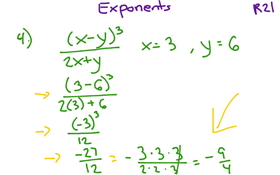 Exponents R21
4) (x-y)³/2x+y x=3 , y=6
→ (3-6)³/2(3)+6
→ (-3)³/12
→ -27/12 = - 3·3·3/2·2·3 = -9/4